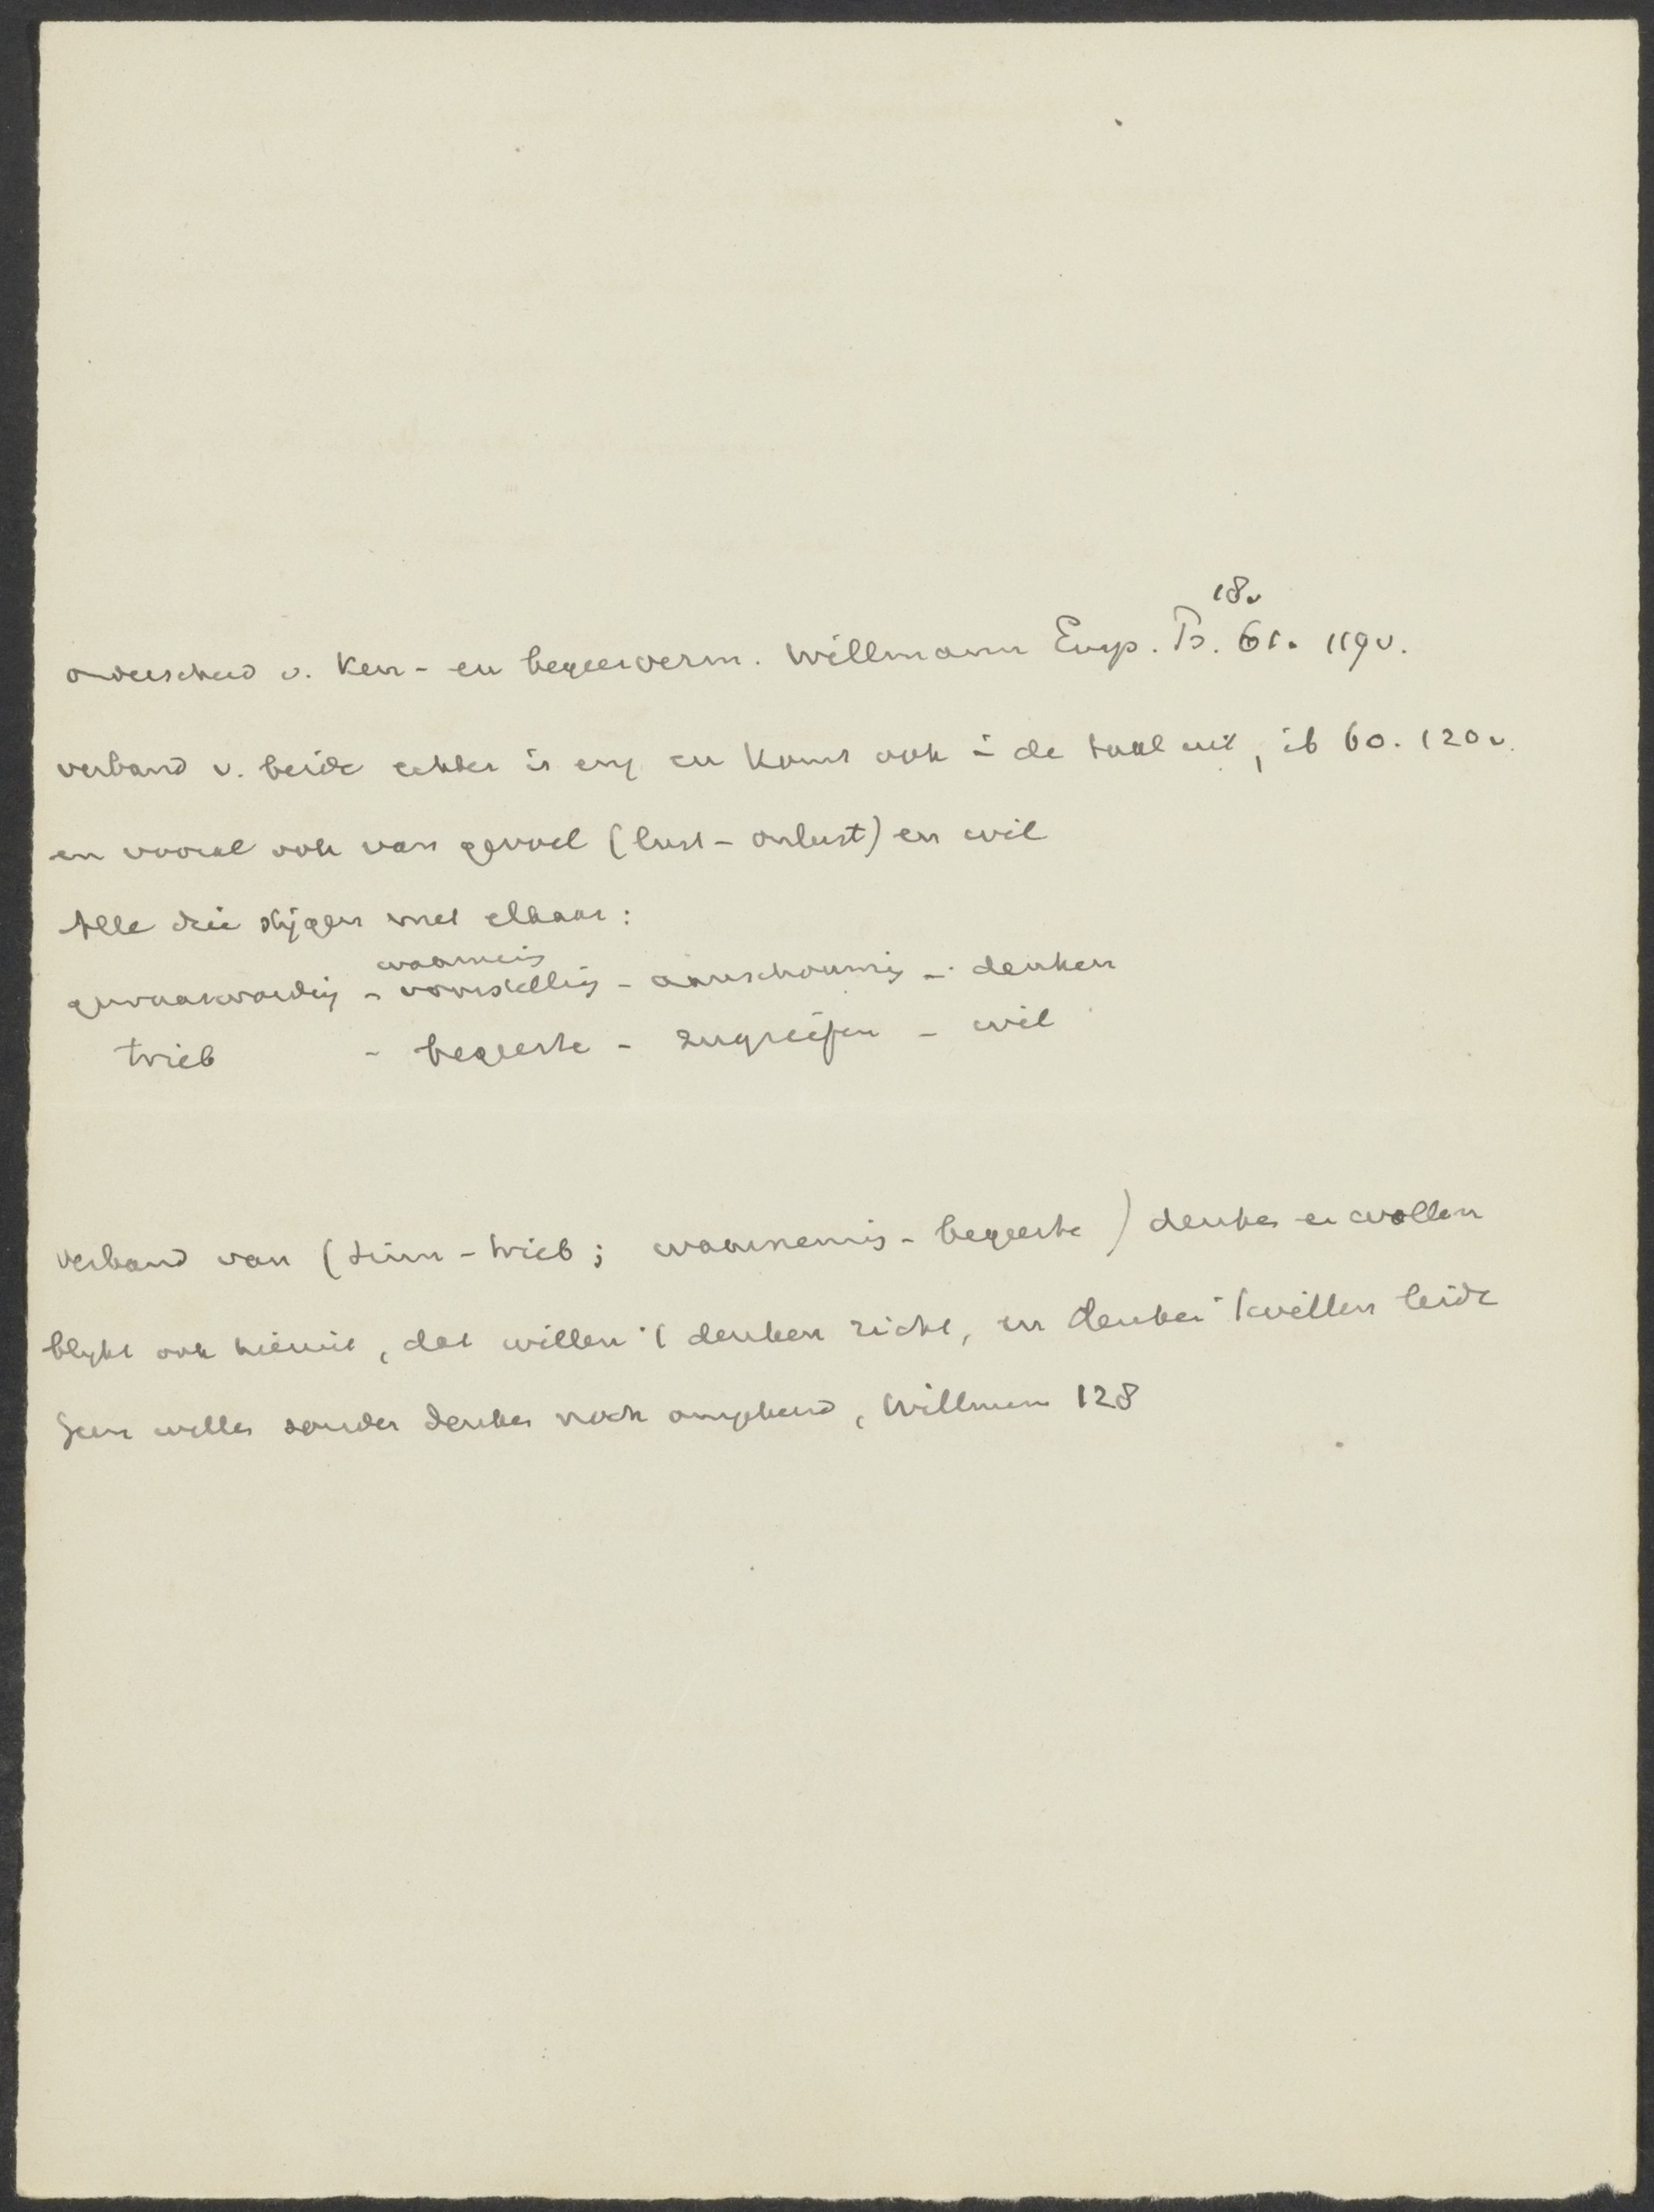 18v
onderscheid v. ken- en begeerverm. Willmann Emp. Ps. 61. 119v.
verband v. beide echter is eng en komt ook in de taal uit, ib 60. 120v.
en vooral ook van gevoel (lust - onlust) en wil
Alle drie stijgen met elkaar:
waarneming
gewaarwording - voorstelling - aanschouwing - denken
trieb - begeerte - zugreifen - wil
verband van (sinn - trieb; waarneming - begeerte) denken en wollen
blijkt ook hieruit, dat willen 't denken richt, en denken 't willen leidt
Geen willen zonder denken noch omgekeerd, Willmann 128